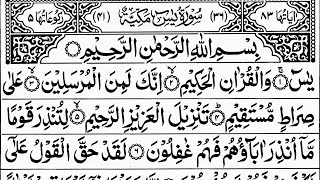 اٰیَاتُهَا ٨٣ (٣٦) سُوْرَةُ يٰسٓ مَكِّيَّةٌ (٤١) رُكُوْعَاتُهَا ٥
بِسْمِ اللهِ الرَّحْمٰنِ الرَّحِيْمِ
يٰسٓ ۝١ وَالْقُرْاٰنِ الْحَكِيْمِ ۝٢ اِنَّكَ لَمِنَ الْمُرْسَلِيْنَ ۝٣ عَلٰى
صِرَاطٍ مُّسْتَقِيْمٍ ۝٤ تَنْزِيْلَ الْعَزِيْزِ الرَّحِيْمِ ۝٥ لِتُنْذِرَ قَوْمًا
مَّاۤ اُنْذِرَ اٰبَآؤُهُمْ فَهُمْ غٰفِلُوْنَ ۝٦ لَقَدْ حَقَّ الْقَوْلُ عَلٰٓى